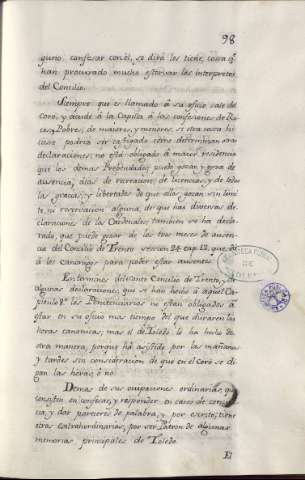 98
guno confesar con él, se dirá les tiene, cosa q̃
han procurado mucho estorvar los interpretes
del Concilio.
Siempre que es llamado á su oficio sale del
coro, y acude á la Capilla á las confesiones de Ri-
cos, y Pobres, de maiores, y menores, si otra cosa hi-
ciese podria ser castigado como determinan otras
declaraciones; no está obligado á maior residencia
que los demas Prebendados, puede gozar, y goza de
ausencia, dias de recreacion, de licencias, y de todas
las gracias, y libertades de que ellos gozan sin limi-
te, ni restriccion alguna, de que hai diversas de-
claraciones de los Cardenales; tambien se ha decla-
rado, que puede gozar de los tres meses de ausen-
cia del Concilio de Trento session 24. cap. 12. que dá
á los canonigos para poder estar ausentes.
En terminos del santo Concilio de Trento, y de
algunas declaraciones, que se han hecho á aquel Ca-
pitulo 8º los Penitenciarios no estan obligados á
estar en su oficio mas tiempo del que duraren las
horas canonicas; mas el de Toledo lo ha hecho de
otra manera, porque há asistido por las mañanas
y tardes sin consideracion de que en el coro se di-
gan las horas, ó no.
Demas de sus ocupaciones ordinarias, que
consisten en confesar, y responder en casos de concien-
cia, y dar pareceres de palabra, y por escrito, tiene
otras extrahordinarias, por ser Patron de algunas
memorias principales de Toledo.
El